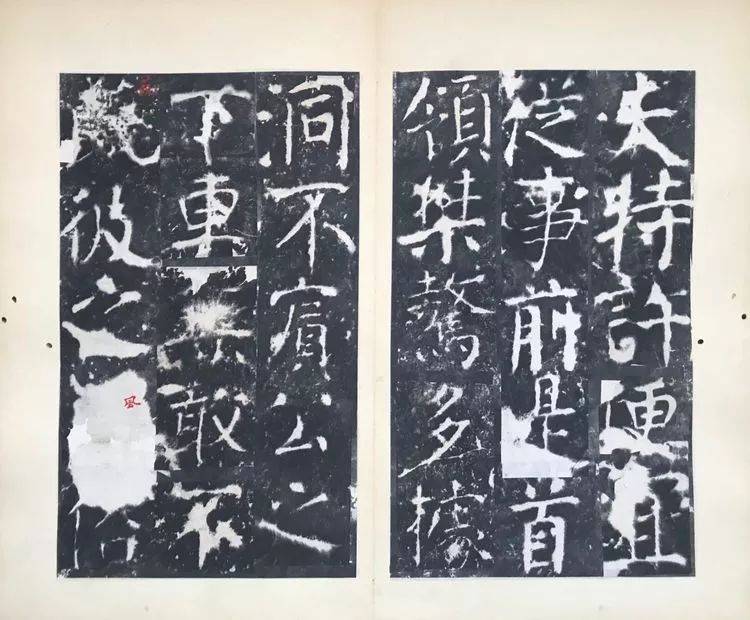 夫特許便宜
從事前是首
領桀驁多據
洞不賓公之
下車無敢不
彼之風俗